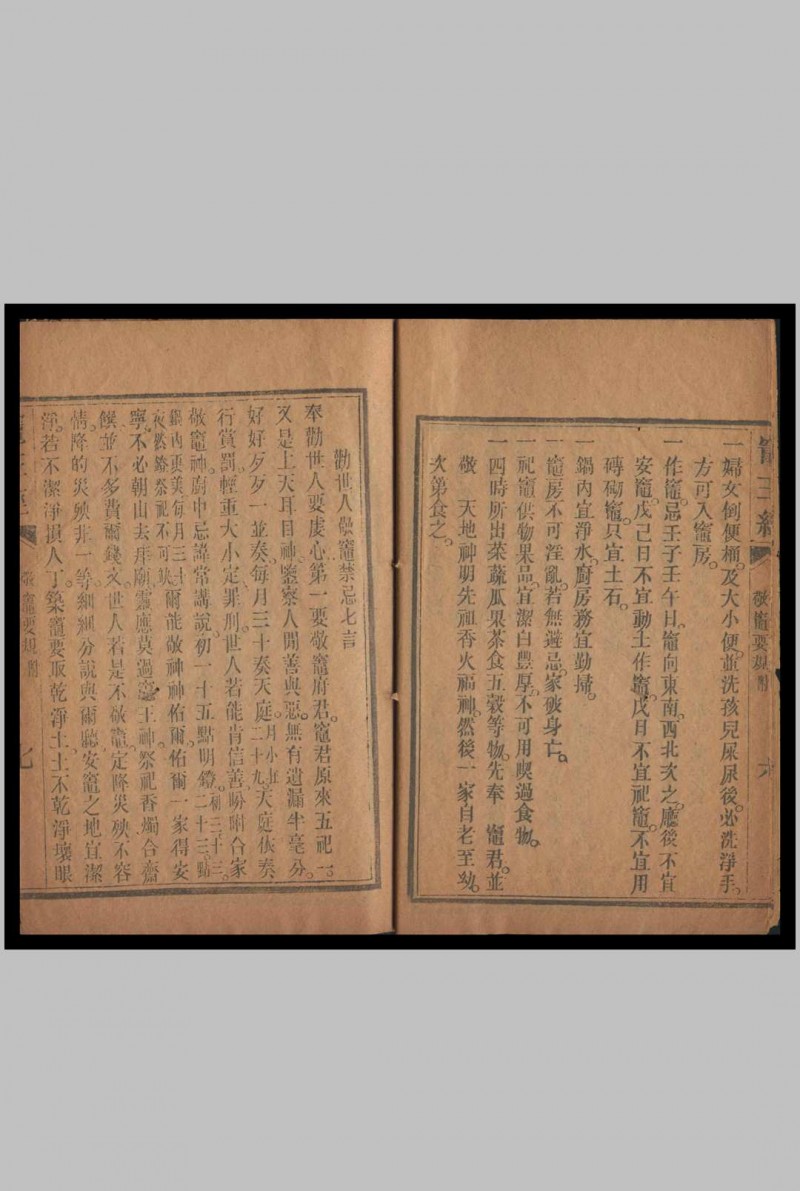 竈王經
敬竈要規附
六
一婦女倒便桶。及大小便。並洗孩兒尿尿後。必洗淨手。
方可入竈房。
一作竈。忌壬子壬午日。竈向東南。西北次之。廳後不宜
安竈。戊己日不宜動土作竈。戊日不宜祀竈。不宜用
磚砌竈。只宜土石。
一鍋內宜淨水。廚房務宜勤掃。
一竈房不可淫亂。若無避忌。家破身亡。
一祀竈供物果品。宜潔白豐厚。不可用喫過食物。
一四時所出菜蔬瓜果茶食五穀等物。先奉 竈君。並
敬 天地神明先祖香火福神。然後一家自老至幼。
次第食之。
勸世人敬竈禁忌七言
奉勸世人要虔心第一要敬竈府君。竈君原來五祀一。
又是上天耳目神。鑒察人間善與惡。無有遺漏半毫分。
好好歹歹一並奏。每月三十奏天庭。月小在二十九。天庭依奏
行賞罰。輕重大小定罪刑。世人若能肯信善。吩咐合家
敬竈神。廚中忌諱常講說。初一十五點明燈。初三十三。二十三。點
鍋內更美。每月三十夜燃燈祭祀不可缺。爾能敬神神佑爾。佑爾一家得安
寧。不必朝山去拜廟。靈應莫過竈王神。祭祀香燭合齋
饌。並不多費爾錢文。世人若是不敬竈。定降災殃不容
情。降的災殃非一等。細細分說與爾聽。安竈之地宜潔
淨。若不潔淨損人丁。築竈要取乾淨土。土不乾淨壞眼
敬竈要規附
七